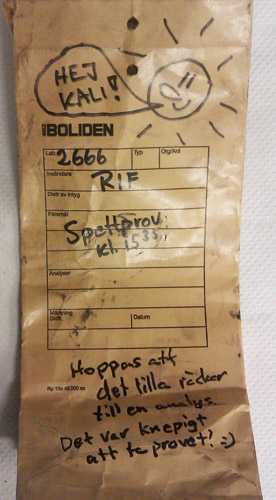 HEJ
KALI!
BOLIDEN
Lab. 2666 Typ Org/Anl
Insändare RIF
Distr av intyg
Föremål
Spettprov
kl. 15 35
Analyser
Märkning
Skift Datum
Hoppas att
det lilla räcker
till en analys.
Det var knepigt
att ta provet! :)
Rp 10x 48.000 ex